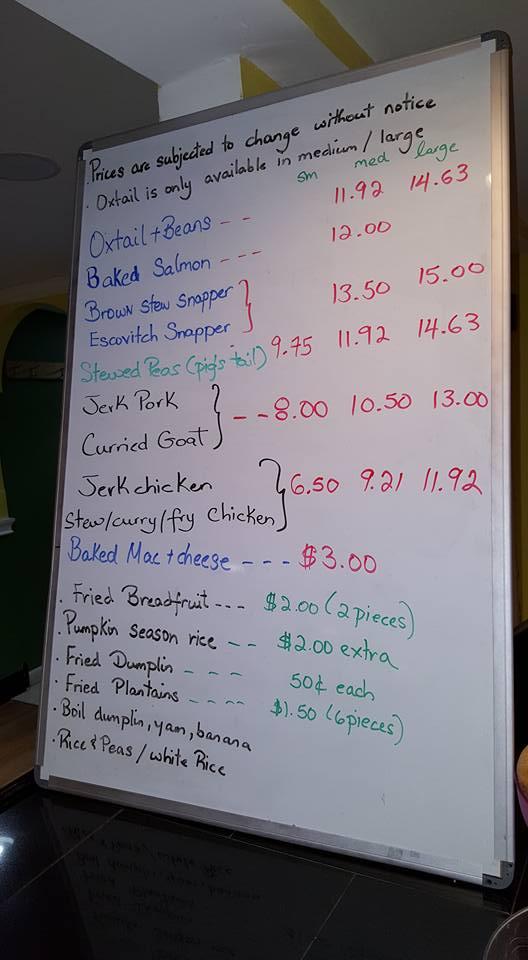 . Prices are subjected to change without notice
. Oxtail is only available in medium / large
sm med large
Oxtail + Beans - - 11.92 14.63
Baked Salmon - - - 12.00
Brown Stew Snapper
Escovitch Snapper } 13.50 15.00
Stewed Peas (pig's tail) 9.75 11.92 14.63
Jerk Pork
Curried Goat } - - 8.00 10.50 13.00
Jerk chicken
Stew/curry/fry Chicken } 6.50 9.21 11.92
Baked Mac + cheese - - - $3.00
. Fried Breadfruit - - - $2.00 (2 pieces)
. Pumpkin season rice - - $2.00 extra
. Fried Dumplin - - - 50¢ each
. Fried Plantains - - - - $1.50 (6 pieces)
. Boil dumplin, yam, banana
. Rice & Peas / white Rice